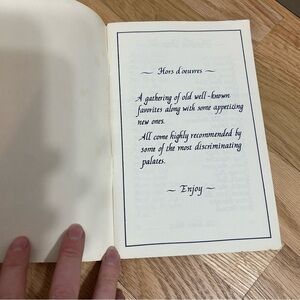 ~ Hors d'oeuvres ~
A gathering of old well-known
favorites along with some appetizing
new ones.
All come highly recommended by
some of the most discriminating
palates.
~ Enjoy ~